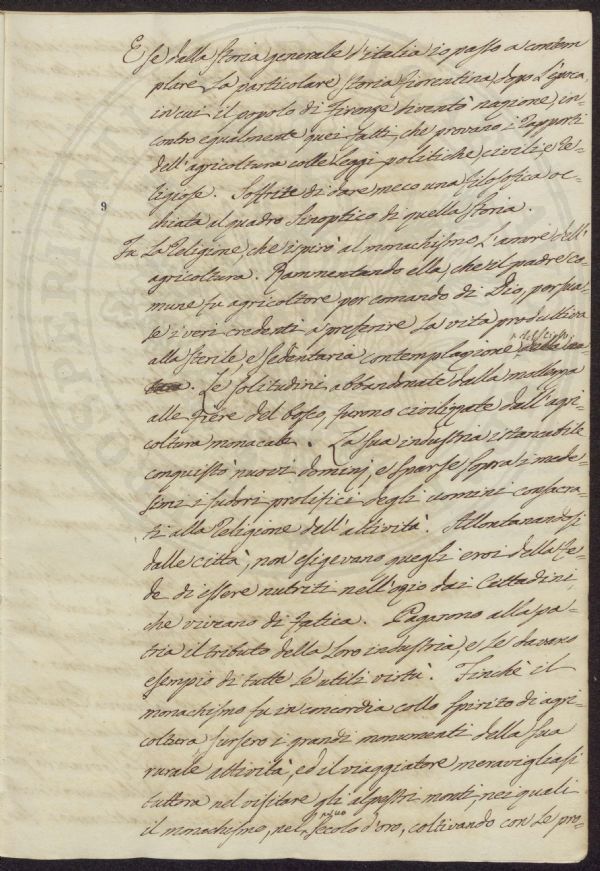 E se dalla storia generale d'italia io passo a contem
plare La particolare storia fiorentina, dopo L'epoca,
in cui il popolo di Firenze diventò nazione, in-
contro egualmente quei fatti, che provano i rapporti
dell'agricoltura colle Leggi politiche, civili, e Re-
ligiose. Soffrite di dare meco una filosofica oc-
chiata al quadro Sinoptico di quella storia.
9
Fu La Religione, che ispirò al monachismo L'amore dell'
agricoltura. Rammentando ella, che il padre co
mune fu agricoltore per comando di Dio, persua-
se i veri credenti a preferire La vita produttiva
alla sterile e sedentaria contemplazione
Le solitudini abbandonate dalla mattana
alle fiere del bosco, furono civilizzate dall'agri-
coltura monacale. La sua industria istancabile
conquistò nuovi dominj, e sparse sopra i mede-
simi i sudori prolifici degli uomini consacra-
ti alla Religione dell'attività. Allontanandosi
dalle città, non esigevano quegli eroi della Fe-
de di essere nutriti nell'ozio dai Cittadini,
che viveano di fatica. Pagarono alla pa-
tria il tributo della Loro industria, e Le davano
esempio di tutte Le utili virtù. Finchè il
monachismo fu in concordia collo spirito di agri-
coltura sursero i grandi monumenti della sua
rurale attività, ed il viaggiatore meravigliasi
tuttora nel visitare gli alpestri monti, nei quali
il monachismo, nel suo secolo d'oro, coltivando con Le pro-
PROSPERITATI